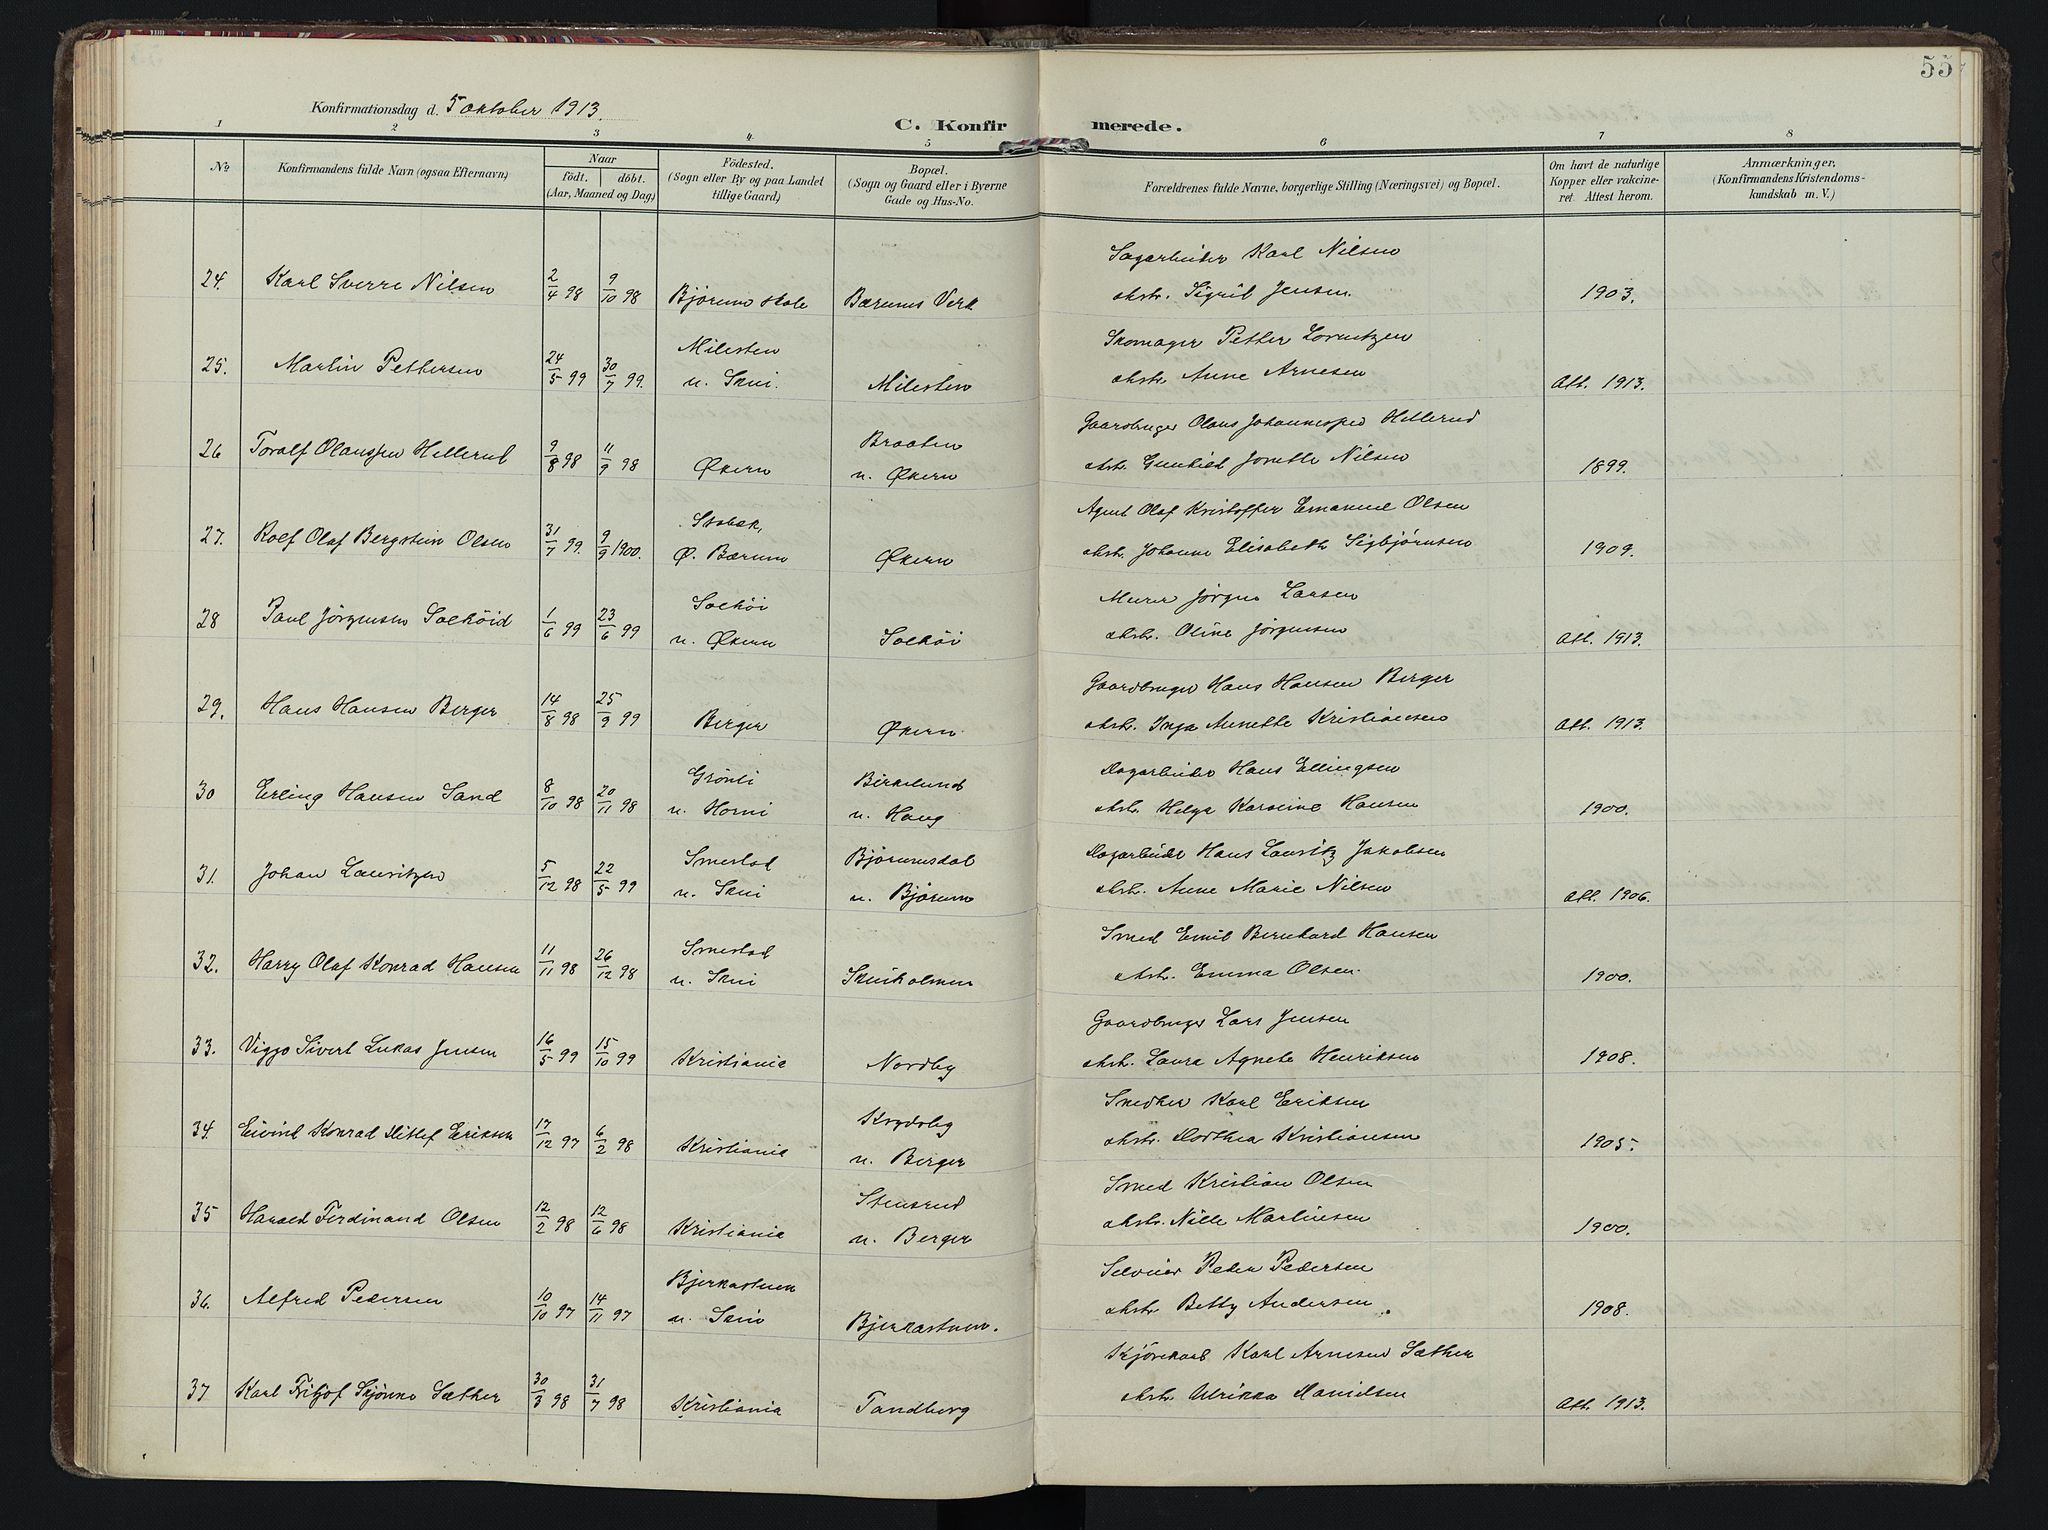 55
Konfirmationsdag d. 5 oktober 1913.
C. Konfirmerede.
1 2 3 4 5 6 7 8
No Konfirmandens fulde Navn (ogsaa Efternavn) Naar födt. döbt. (Aar, Maaned og Dag) Födested. (Sogn eller By og paa Landet tillige Gaard) Bopæl. (Sogn og Gaard eller i Byerne Gade og Hus-No. Forældrenes fulde Navne, borgerlige Stilling (Næringsvei) og Bopæl. Om havt de naturlige Kopper eller vakcineret. Attest herom. Anmærkninger, (Konfirmandens Kristendomskundskab m. V.)
Sagarbeider Karl Nilsen
24. Karl Sverre Nilsen 2/4 98 9/10 98 Bjørum skole Bærums Verk Sigrid Jensen. 1903.
Milesten Skomager Petter Lorentzen
25. Martin Pettersen 24/5 99 30/7 99. u. Skui. Milesten Anne Arnesen Att. 1913.
Braaten Gaardbruger Olaus Hellerud
26 Toralf Olaussen Hellerud 9/8 98 11/9 98 Økern u. Økern Gunhild Jonette Nilsen 1899.
Stabek, Agent Olaf Kristoffer Emanuel Olsen
27. Rolf Olaf Bergstein Olsen 31/7 99. 9/9 1900. Ø. Bærum Økern Johanne Elisabeth Sigbjørnsen 1909.
Solhöi Murer Jørgen Larsen
28 Paul Jörgensen Solhöid 1/6 99 23/6 99 u. Økern Solhöi Oline Jørgensen Att. 1913.
Gaardbruger Hans Hansen Berger
29. Hans Hansen Berger 14/8 98 25/9 99 Berger Økern Inga Annette Kristiansen Att. 1913.
Grönli Birkelund Dagarbeider Hans Ellingsen
30 Erling Hansen Sand 8/10 98 20/11 98 u. Horni u. Haug Helga Karoline Hansen 1900.
Smestad Bjørumsdal Dagarbeider Hans Lauritz Jakobsen
31. Johan Lauritzen 5/12 98 22/5 99 u. Skui u. Bjørum Anne Marie Nilsen Att. 1906.
Smestad Smed Emil Bernhard Hansen
32. Harry Olaf Konrad Hansen 11/11 98 26/12 98 u. Skui Skuiholmen Emma Olsen. 1900.
Gaardbruger Lars Jensen
33. Viggo Sivert Lukas Jensen 16/5 99 15/10 99 Kristiania Nordby Laura Agnete Henriksen 1908.
Snedker Karl Eriksen
34. Eivind Konrad Ditlef Eriksen 17/12 97 6/2 98 Kristiania u. Berger Dorthea Kristiansen 1905.
Stensrud Smed Kristian Olsen
35 Harald Ferdinand Olsen 12/2 98 12/6 98 Kristiania u. Berger Nille Martinsen 1900.
Bjerkastuen Selveier Peder Pedersen
36. Alfred Pedersen 10/10 97 14/11 97 u. Skui Bjerkastuen. Betty Andersen. 1908.
Karl Arnesen Sæther
37 Karl Fritjof Skjönne Sæther 30/3 98 31/7 98 Kristiania Tandberg Ulrikka Danielsen Att. 1913.